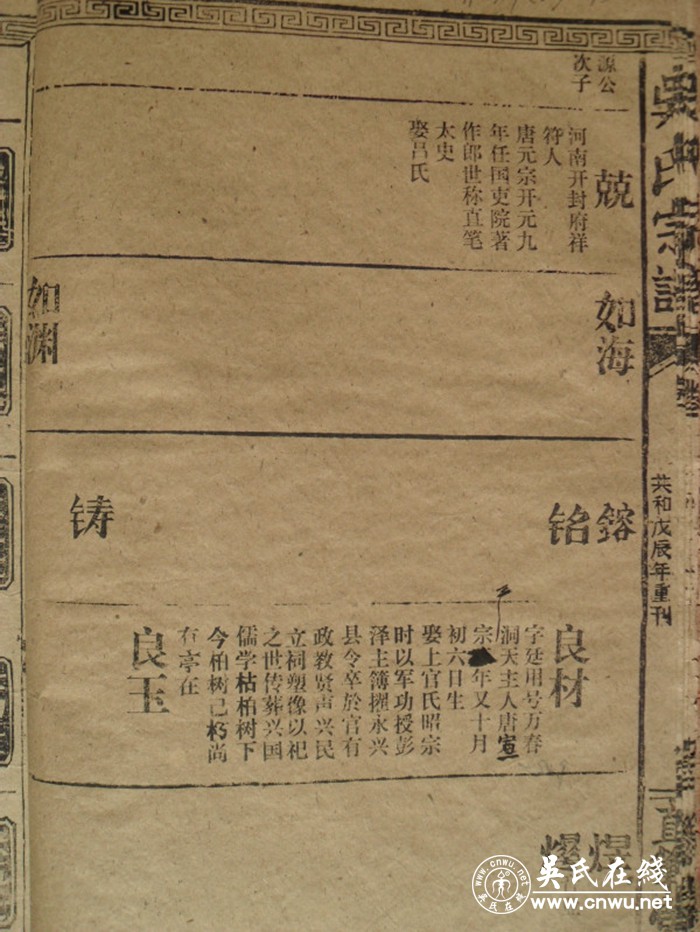 吴氏宗譜
共和戊辰年重刊
源公
次子
兢
河南开封府祥
符人
唐元宗开元九
年任国吏院著
作郎世称直笔
太史
娶吕氏
如海
如渊
鎔
铭
铸
良材
字廷用号万春
洞天主人唐宣
宗
年又十月
初六日生
娶上官氏昭宗
时以军功授彭
泽主簿擢永兴
县令卒於官有
政教贤声兴民
立祠塑像以祀
之世传葬兴国
儒学枯柏树下
今柏树已朽尚
有亭在
良玉
煜
吴氏在线
www.cnwu.net
www.cnwu.net
吴氏在线